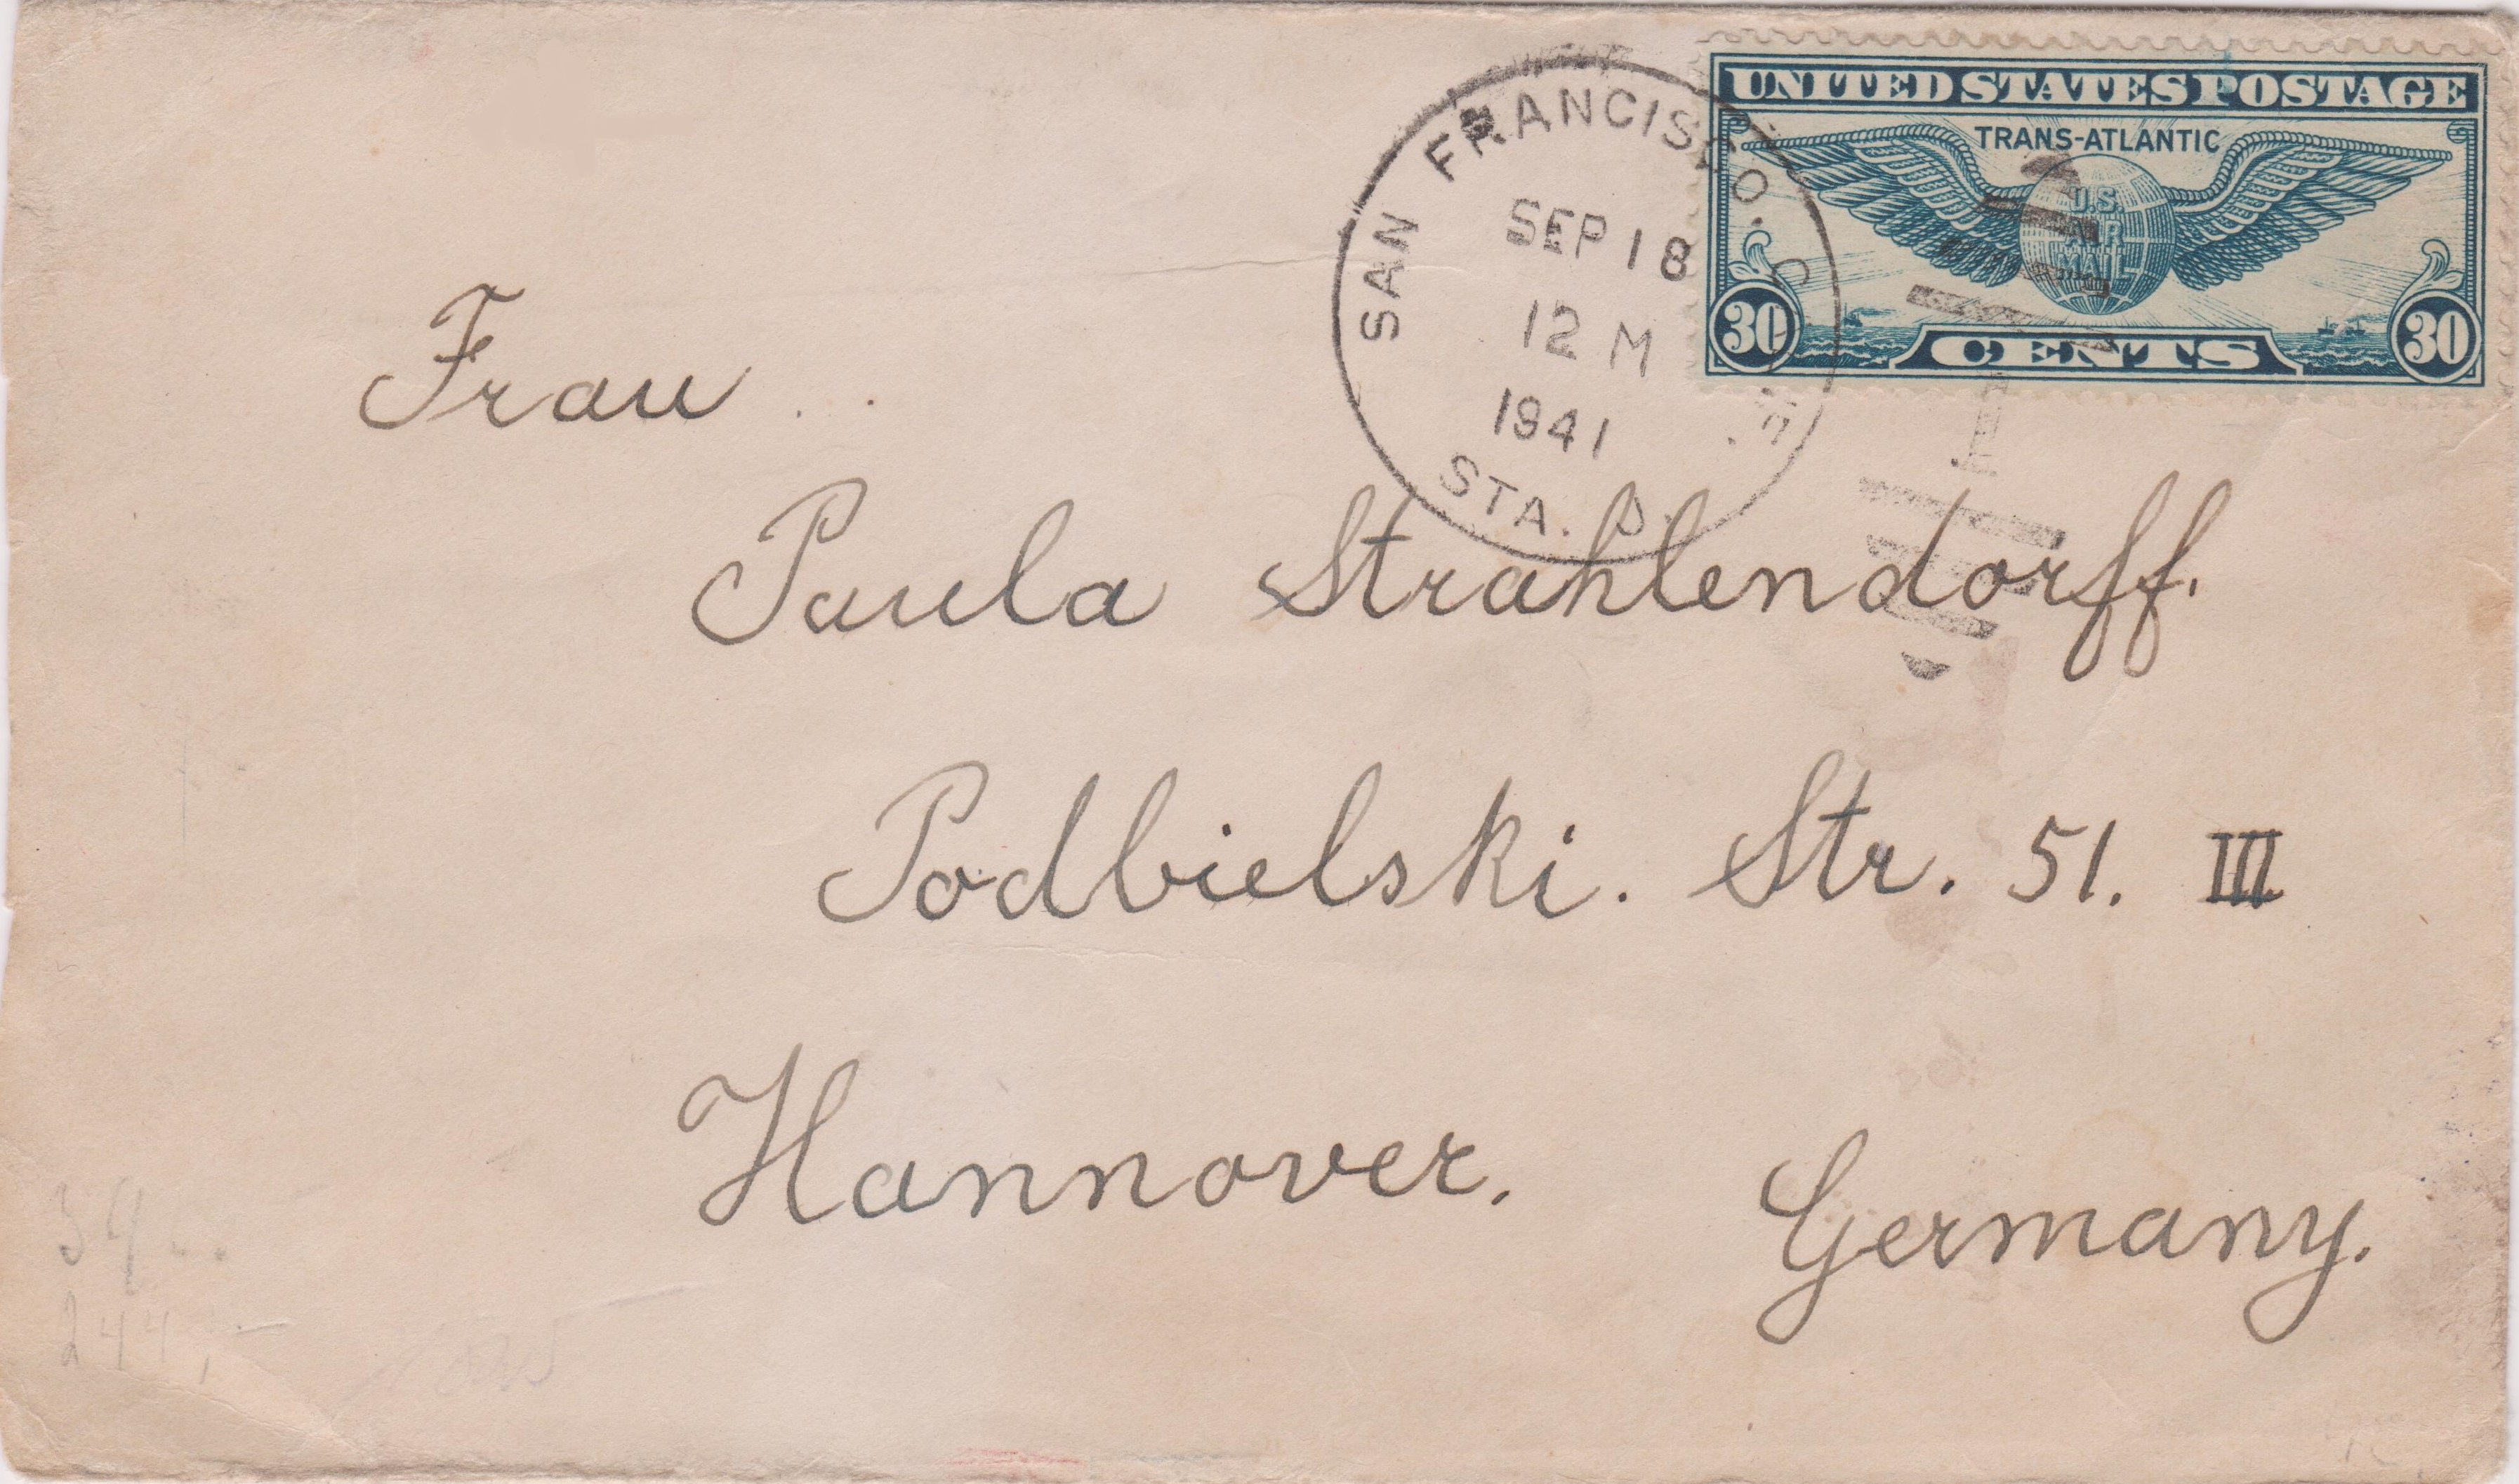 UNITED STATES POSTAGE
TRANS-ATLANTIC
U.S.
AIR
MAIL
30 CENTS 30
SAN FRANCISCO. C
SEP 18
12 M
1941
STA. D.
Frau
Paula Strahlendorff.
Podbielski. Str. 51. III
Hannover. Germany.